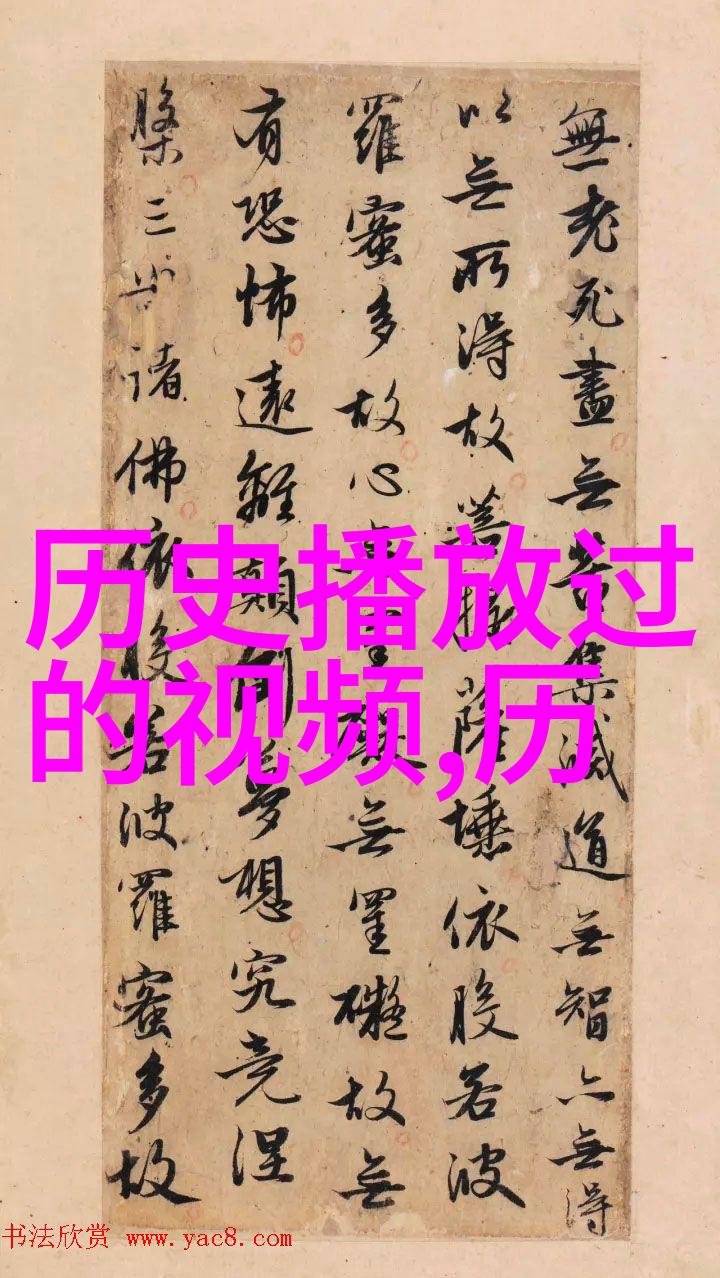 無老死盡無苦集滅道無智亦無得
以無所得故菩提薩埵依般若波
羅蜜多故心無罣礙無罣礙故無
有恐怖遠離顛倒夢想究竟涅
槃三世諸佛依般若波羅蜜多故
历史播放过
的视频,历
书法欣赏 www.yac8.com